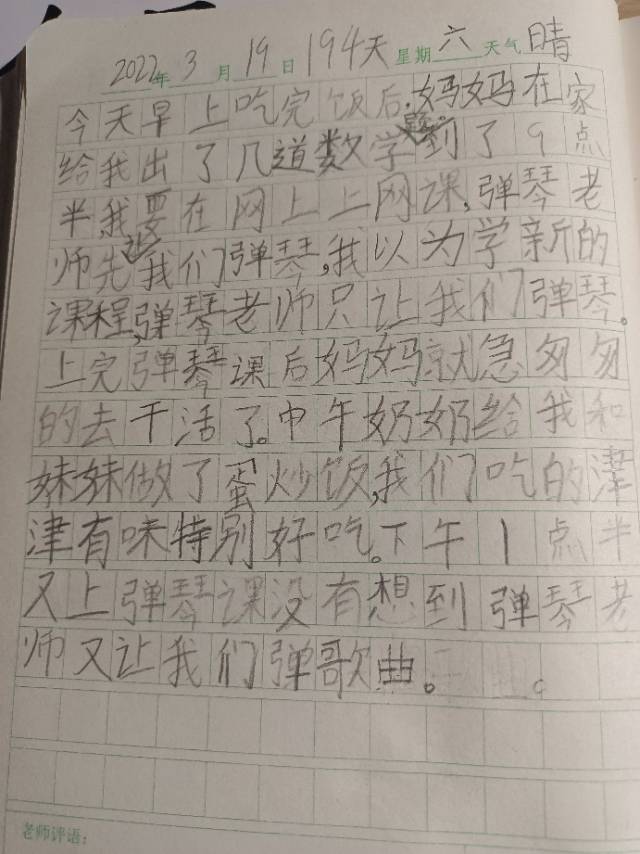 2022年3月19日 194天 星期六天气晴
今天早上吃完饭后,妈妈在家
给我出了几道数学题。到了9点
半,我要在网上上网课,弹琴老
师先让我们弹琴,我以为学新的
课程,弹琴老师只让我们弹琴。
上完弹琴课后妈妈就急匆匆
的去干活了。中午奶奶给我和
妹妹做了蛋炒饭,我们吃的津
津有味特别好吃。下午1点半
又上弹琴课没有想到弹琴老
师又让我们弹歌曲。
老师评语: